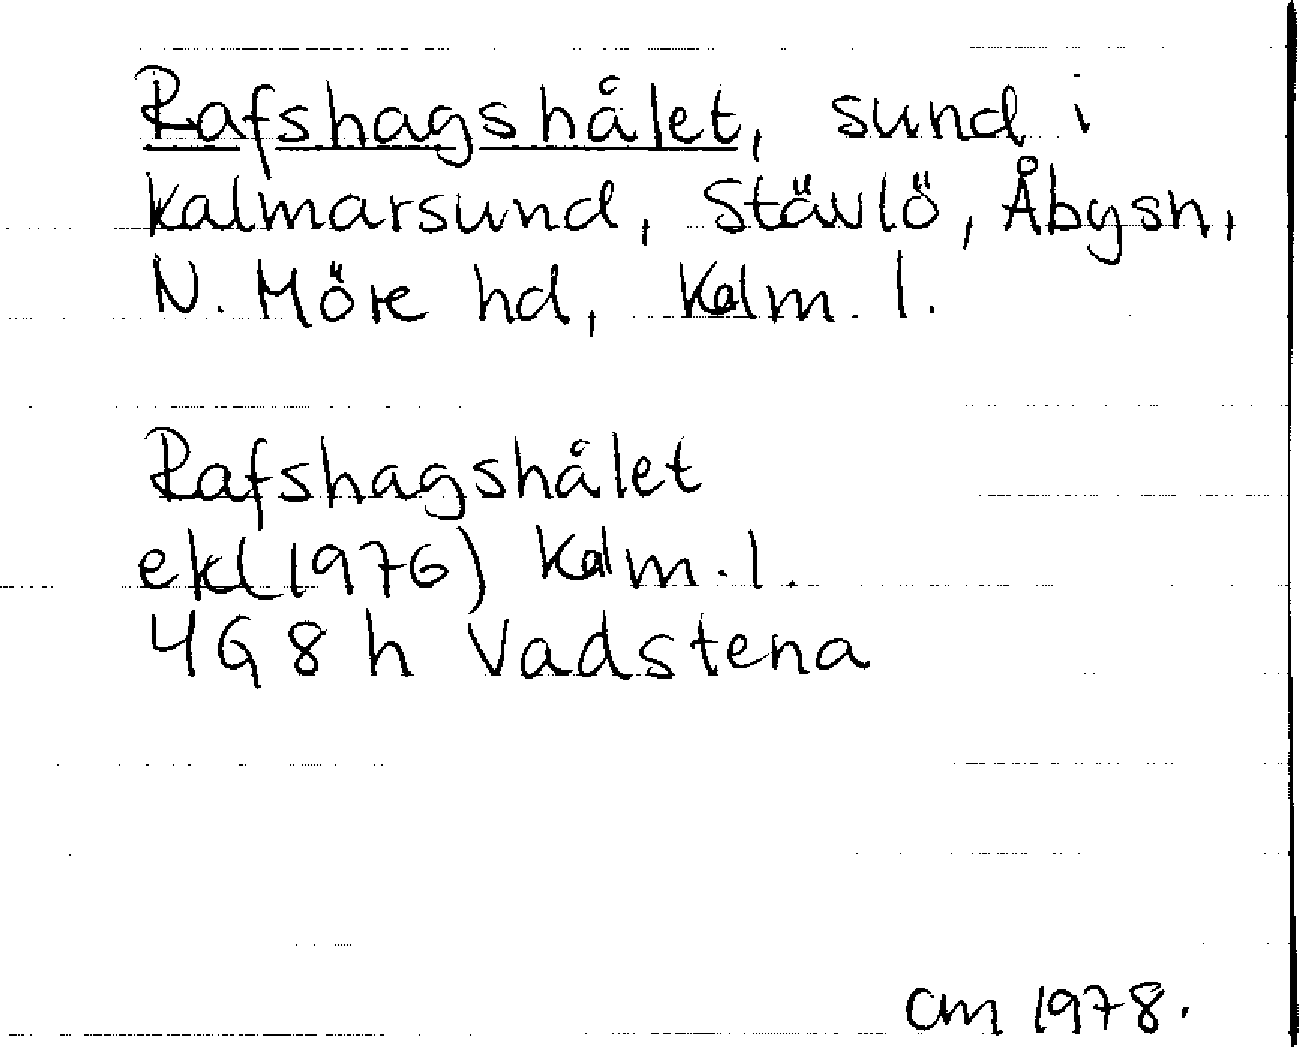 Rafshagshålet, sund i
Kalmarsund, Stävlö, Åbysn,
N. Möre hd, Kalm. l.
Rafshagshålet
ekl (1976) Kalm. l.
4G 8h Vadstena
CM 1978.